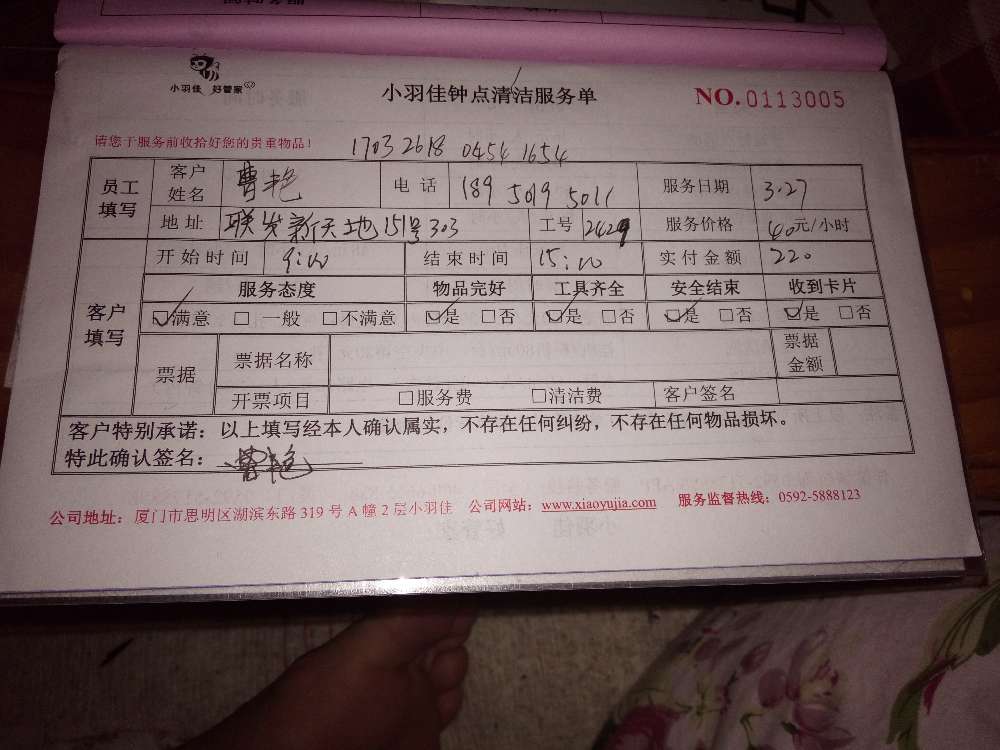 小羽佳 好管家
小羽佳钟点清洁服务单
NO.0113005
请您于服务前收拾好您的贵重物品!
1703 2618 0454 1654
员工填写 客户姓名 曹艳 电话 189 5019 5011 服务日期 3.27
地址 联发新天地151号303 工号 2429 服务价格 40元/小时
客户填写 开始时间 9:00 结束时间 15:00 实付金额 220
服务态度 物品完好 工具齐全 安全结束 收到卡片
☑满意 □一般 □不满意 ☑是 □否 ☑是 □否 ☑是 □否 ☑是 □否
票据 票据名称 票据金额
开票项目 □服务费 □清洁费 客户签名
客户特别承诺:以上填写经本人确认属实,不存在任何纠纷,不存在任何物品损坏。
特此确认签名:曹艳
公司地址:厦门市思明区湖滨东路 319 号 A 幢 2 层小羽佳 公司网站:www.xiaoyujia.com 服务监督热线:0592-5888123